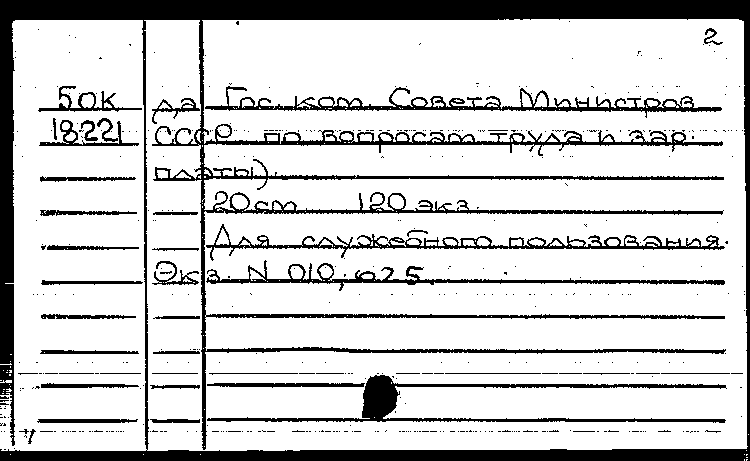 2
50К да Гос. ком. Совета Министров
18221 СССР по вопросам труда и зар.
платы).
20 см 120 экз.
Для служебного пользования.
Экз. N 010; 025.